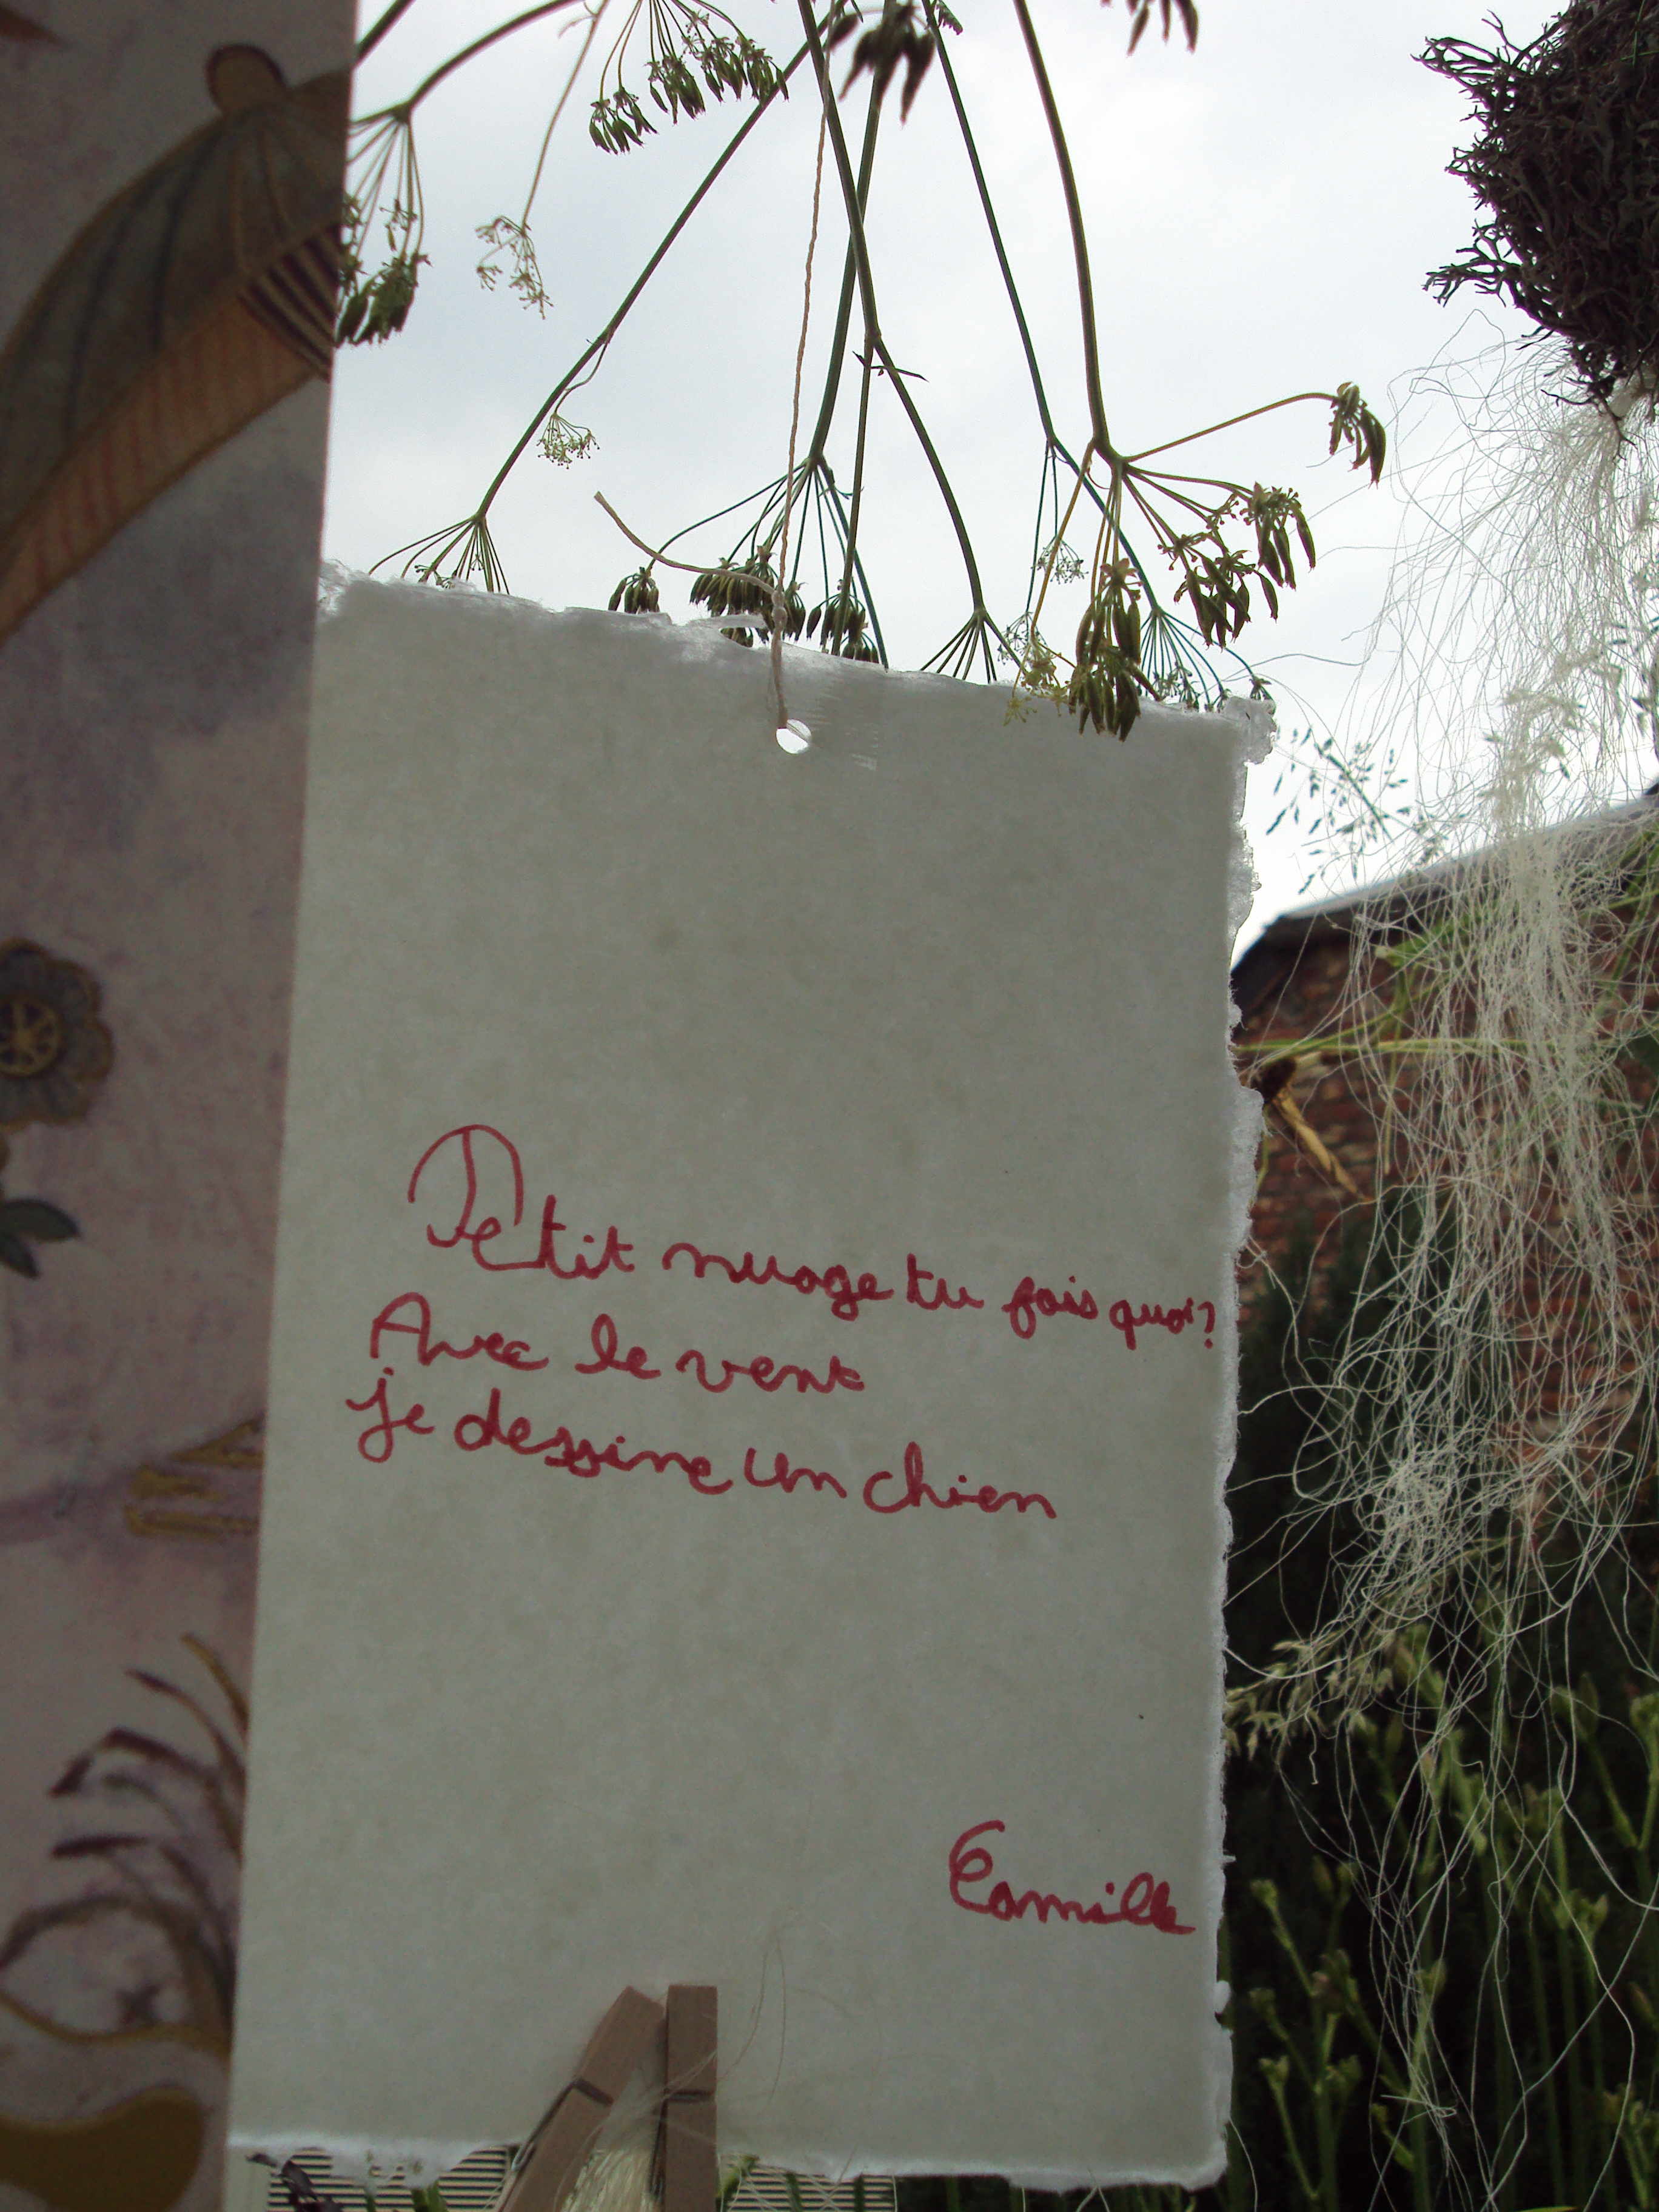 Petit nuage tu fais quoi?
Avec le vent
je dessine un chien
Camille